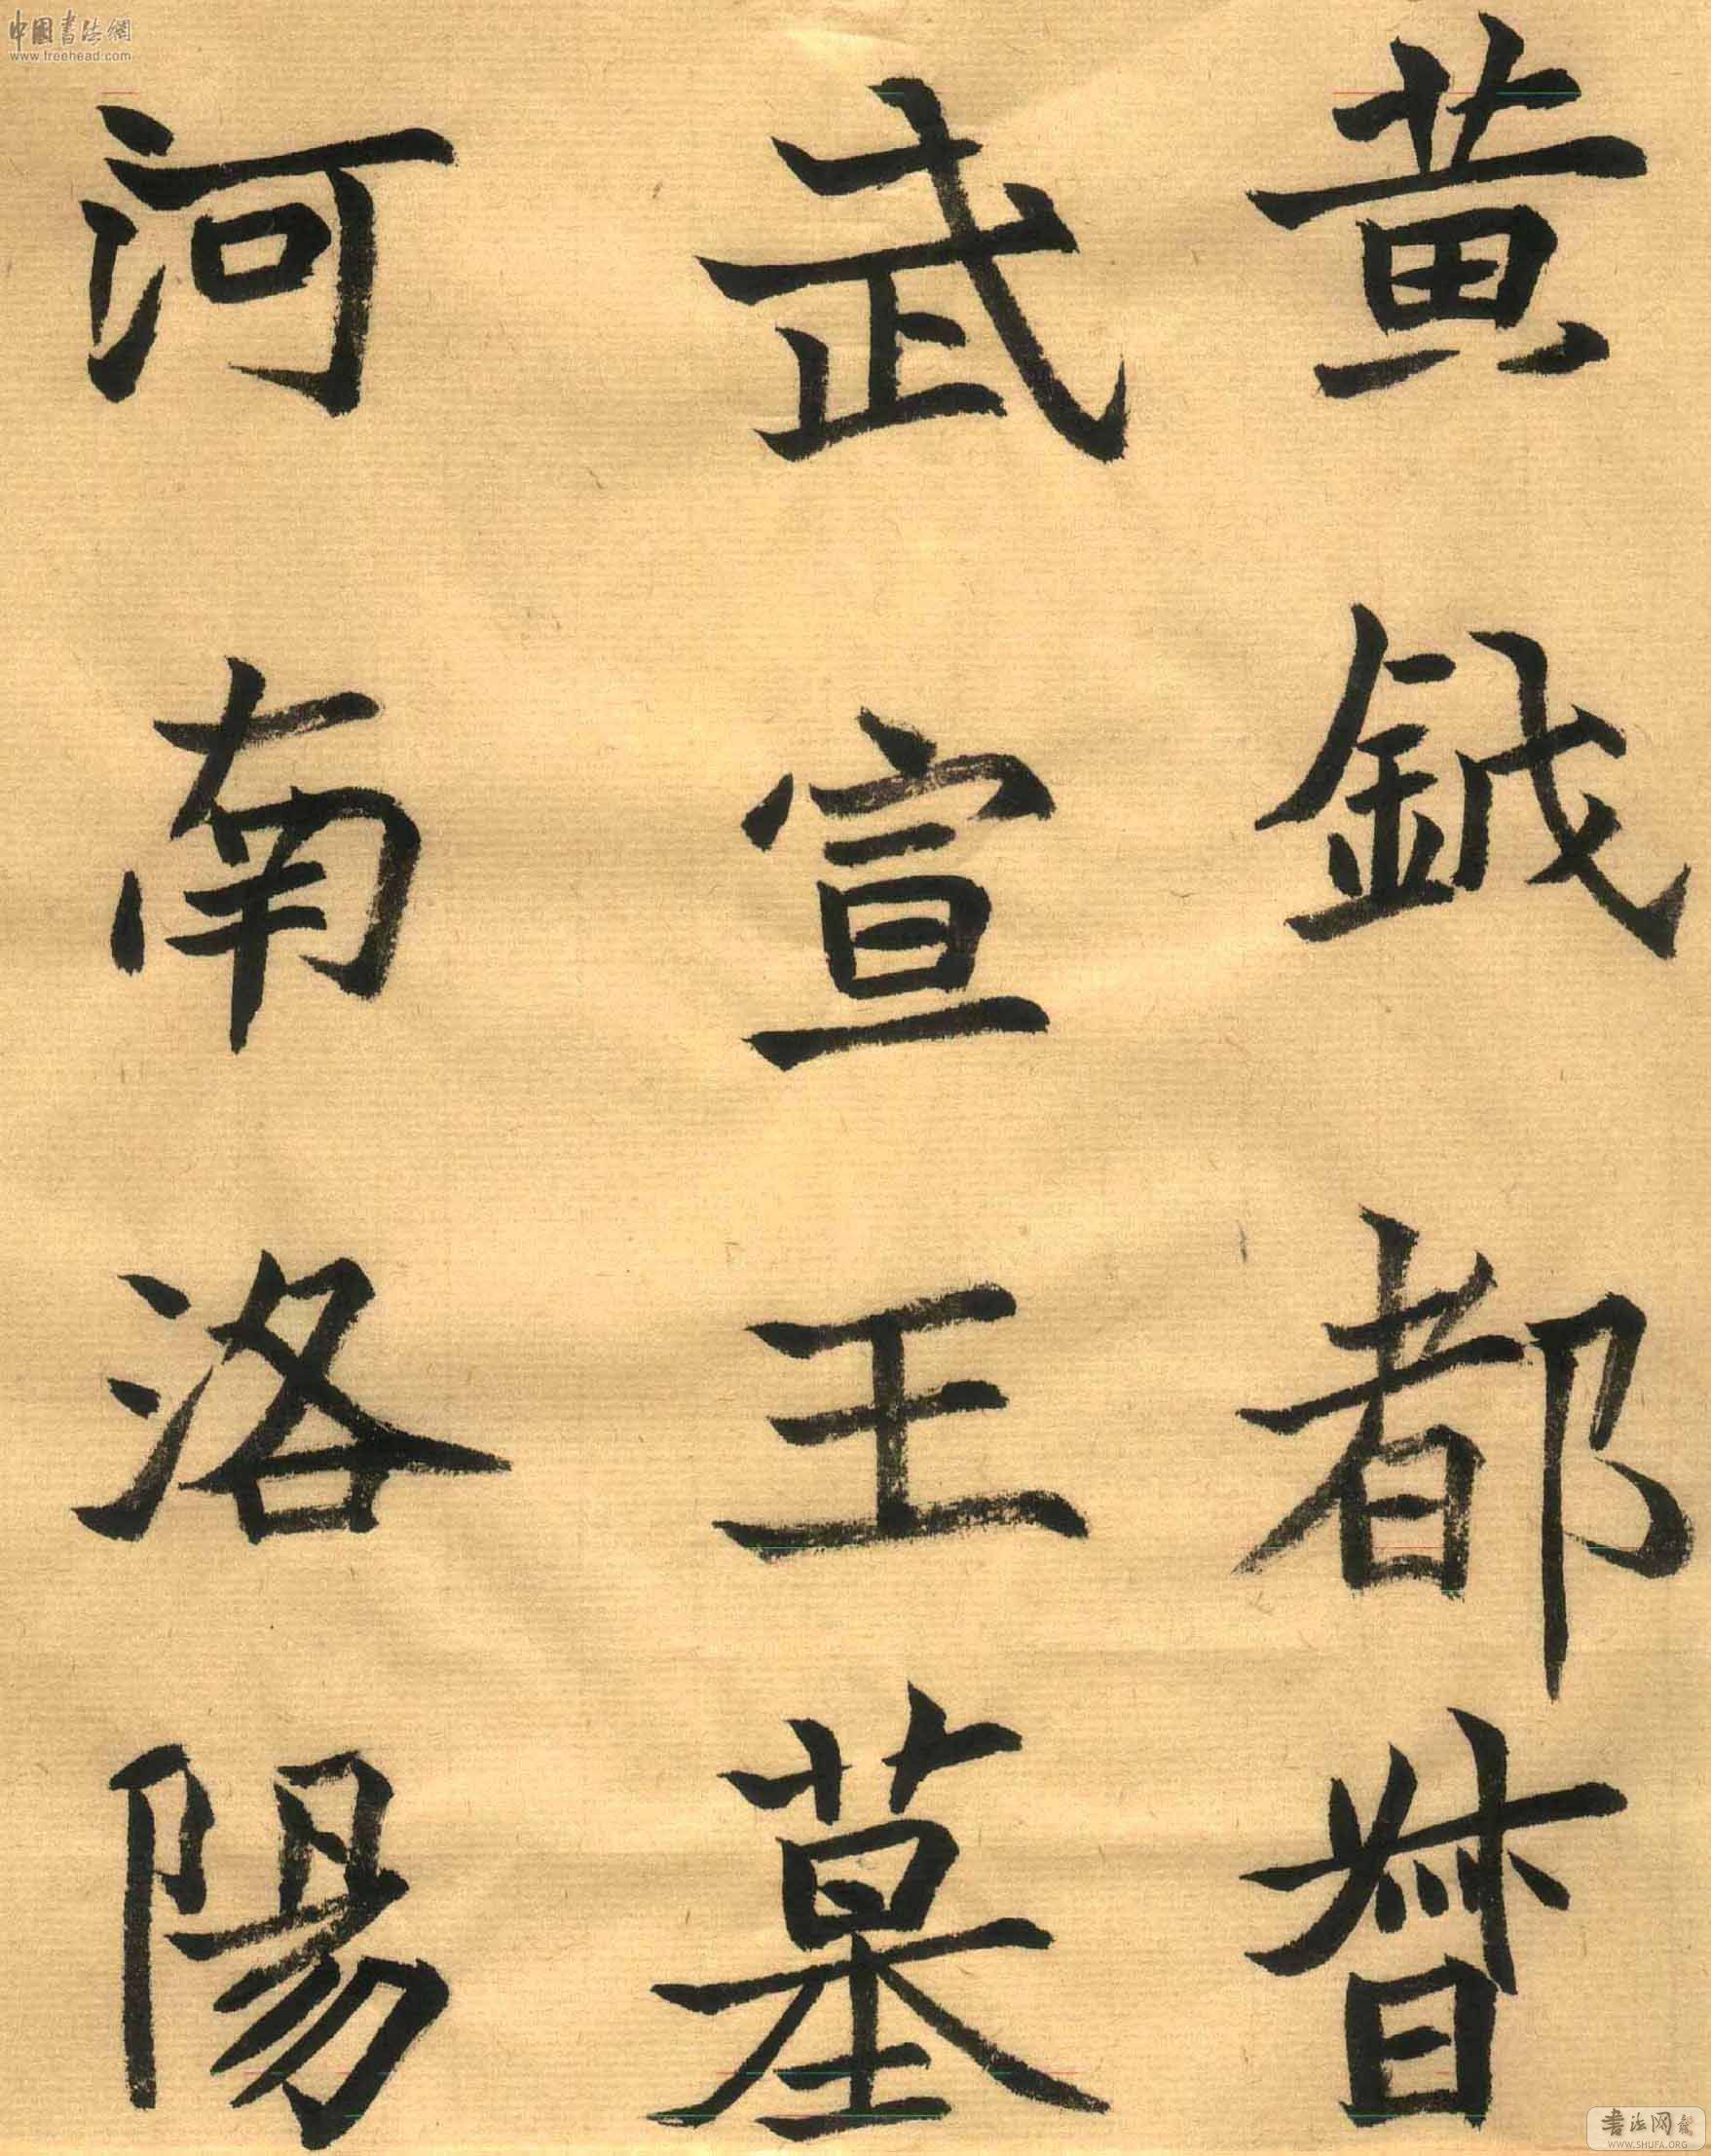 黄鉞都督
武宣王墓
河南洛陽
中國書法網
www.freehead.com
书法网
WWW.SHUFA.ORG